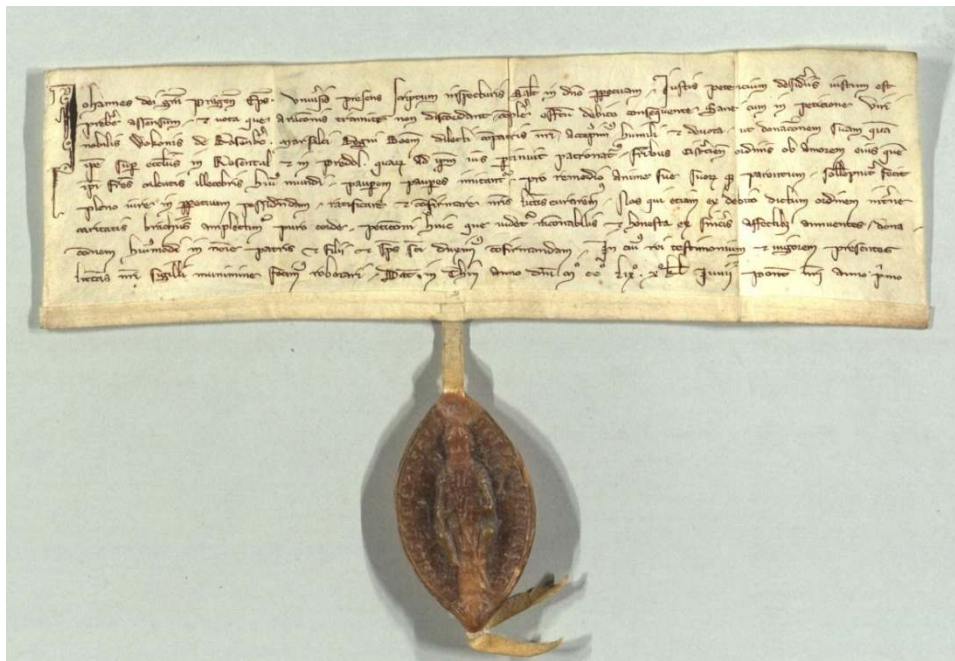 Johannes dei gra Pragen Eps. Vniuersis presens scriptum inspecturis Salt in dno ppetuam. Iustis petencium desideriis iustum est
prebere assensum, et uota que a racionis tramite non discordant, effectu debito consequente. Sane cum in peticione Viri
nobilis Wokonis de, marsalci Regni Boem, dilecti compatris nri, humili et deuota, ut donaconem suam quam
ipe super ecclus in Rosental et in Priedol, quarum ad ipm ius ptinuit patronatus, fribus Cistercien ordinis ob amorem eius quem
ipi fres calcatis illecebris huius mundi, paupem paupes imitantur, pro remedio anime sue suorum parentum, sollempniter fecit
pleno iure in ppetuum possidendam, ratificare et cofirmare nris littis curarem, Nos qui etiam ex debito dictum ordinem interne
caritatis brachiis amplectimur puro corde, peticoni huic que uidetur et honesta ex sinceris affectibus annuentes, dona
conem huiusmodi in noie patris et filii et sps sci duximus cofirmandam. In cuius rei testimonium et uigorem presentes
littas nri sigilli munimine fecimus roborari. Dat in anno dni mo cco lixo, xo kl Iunii pont nri anno primo